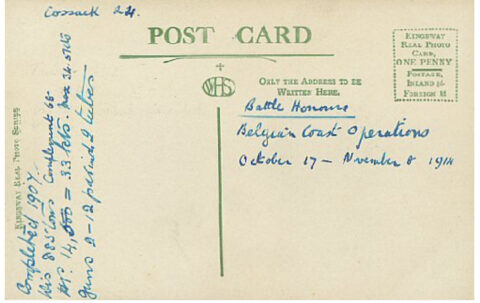 Cossack 24.
POST CARD
WHS
ONLY THE ADDRESS TO BE
WRITTEN HERE.
KINGSWAY
REAL PHOTO
CARD,
ONE PENNY
POSTAGE,
INLAND
FOREIGN
Battle Honours
Belgian Coast Operations
October 17 – November 8 1914
KINGSWAY REAL PHOTO SERIES
Completed 1907.
Dis 885 tons Complement 68
H.P. 14,000 = 33 kts.
guns 2-12 2 tubes